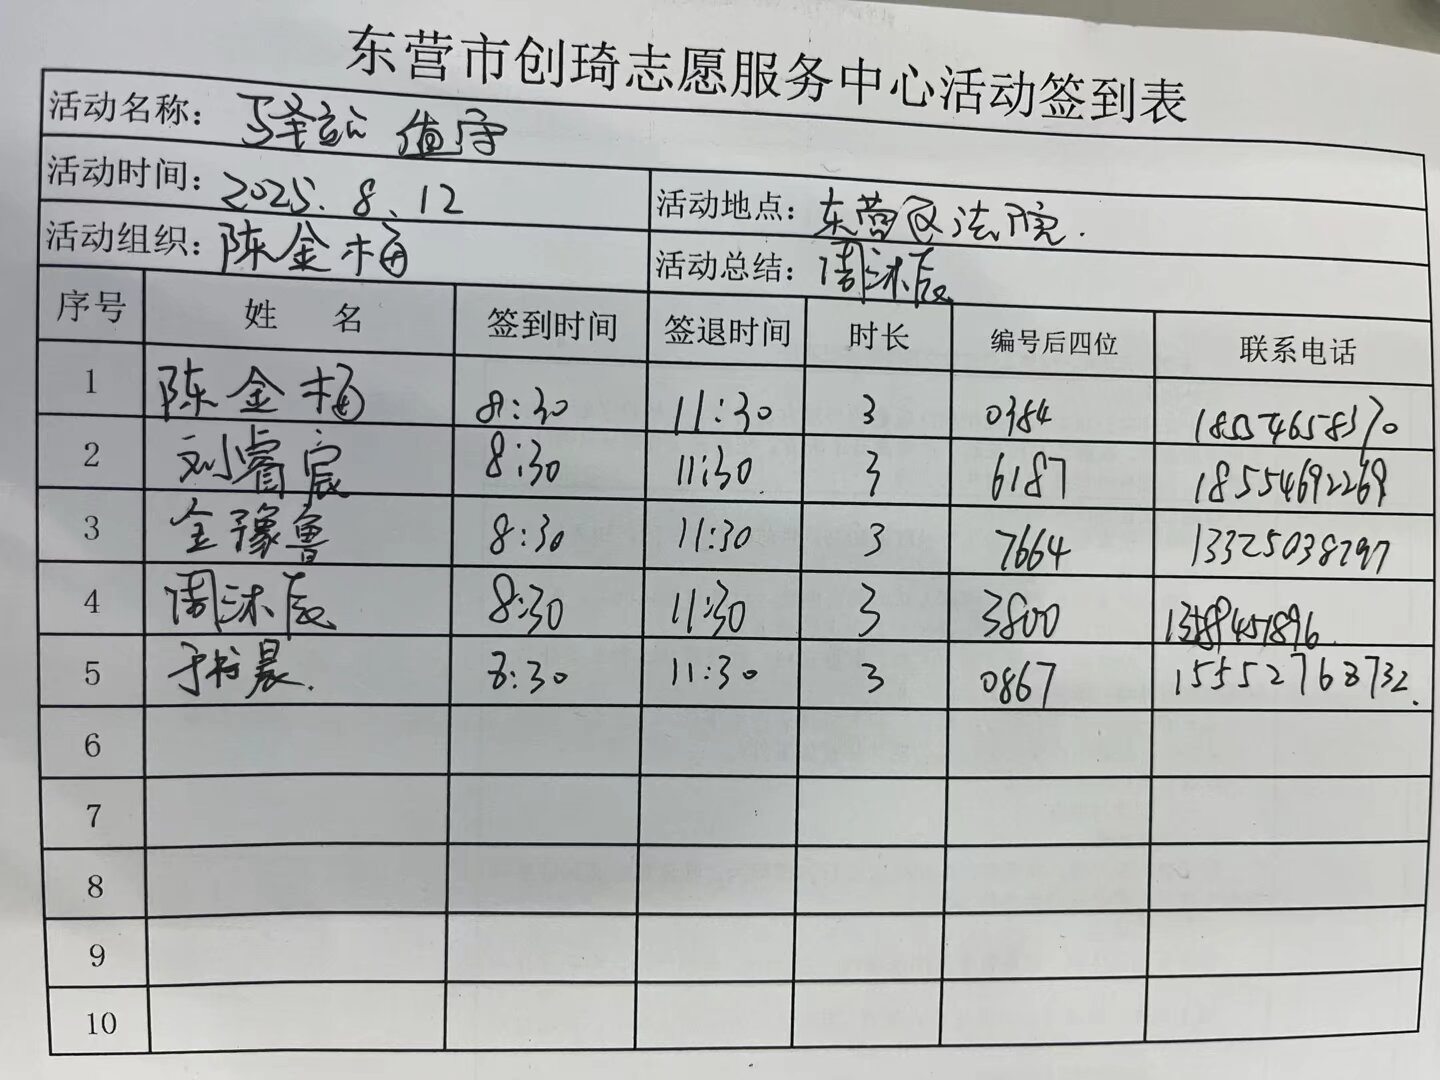 东营市创琦志愿服务中心活动签到表
活动名称: 驿站 值守
活动时间: 2025.8.12 活动地点: 东营区法院.
活动组织: 陈金梅 活动总结: 周沐辰
序号 姓 名 签到时间 签退时间 时长 编号后四位 联系电话
1 陈金梅 8:30 11:30 3 0384
2 刘睿宸 8:30 11:30 3 6187 18554692269
3 金豫鲁 8:30 11:30 3 7664 13325038297
4 周沐辰 8:30 11:30 3 3800
5 于 晨. 8:30 11:30 3 0867 15552768732.
6
7
8
9
10